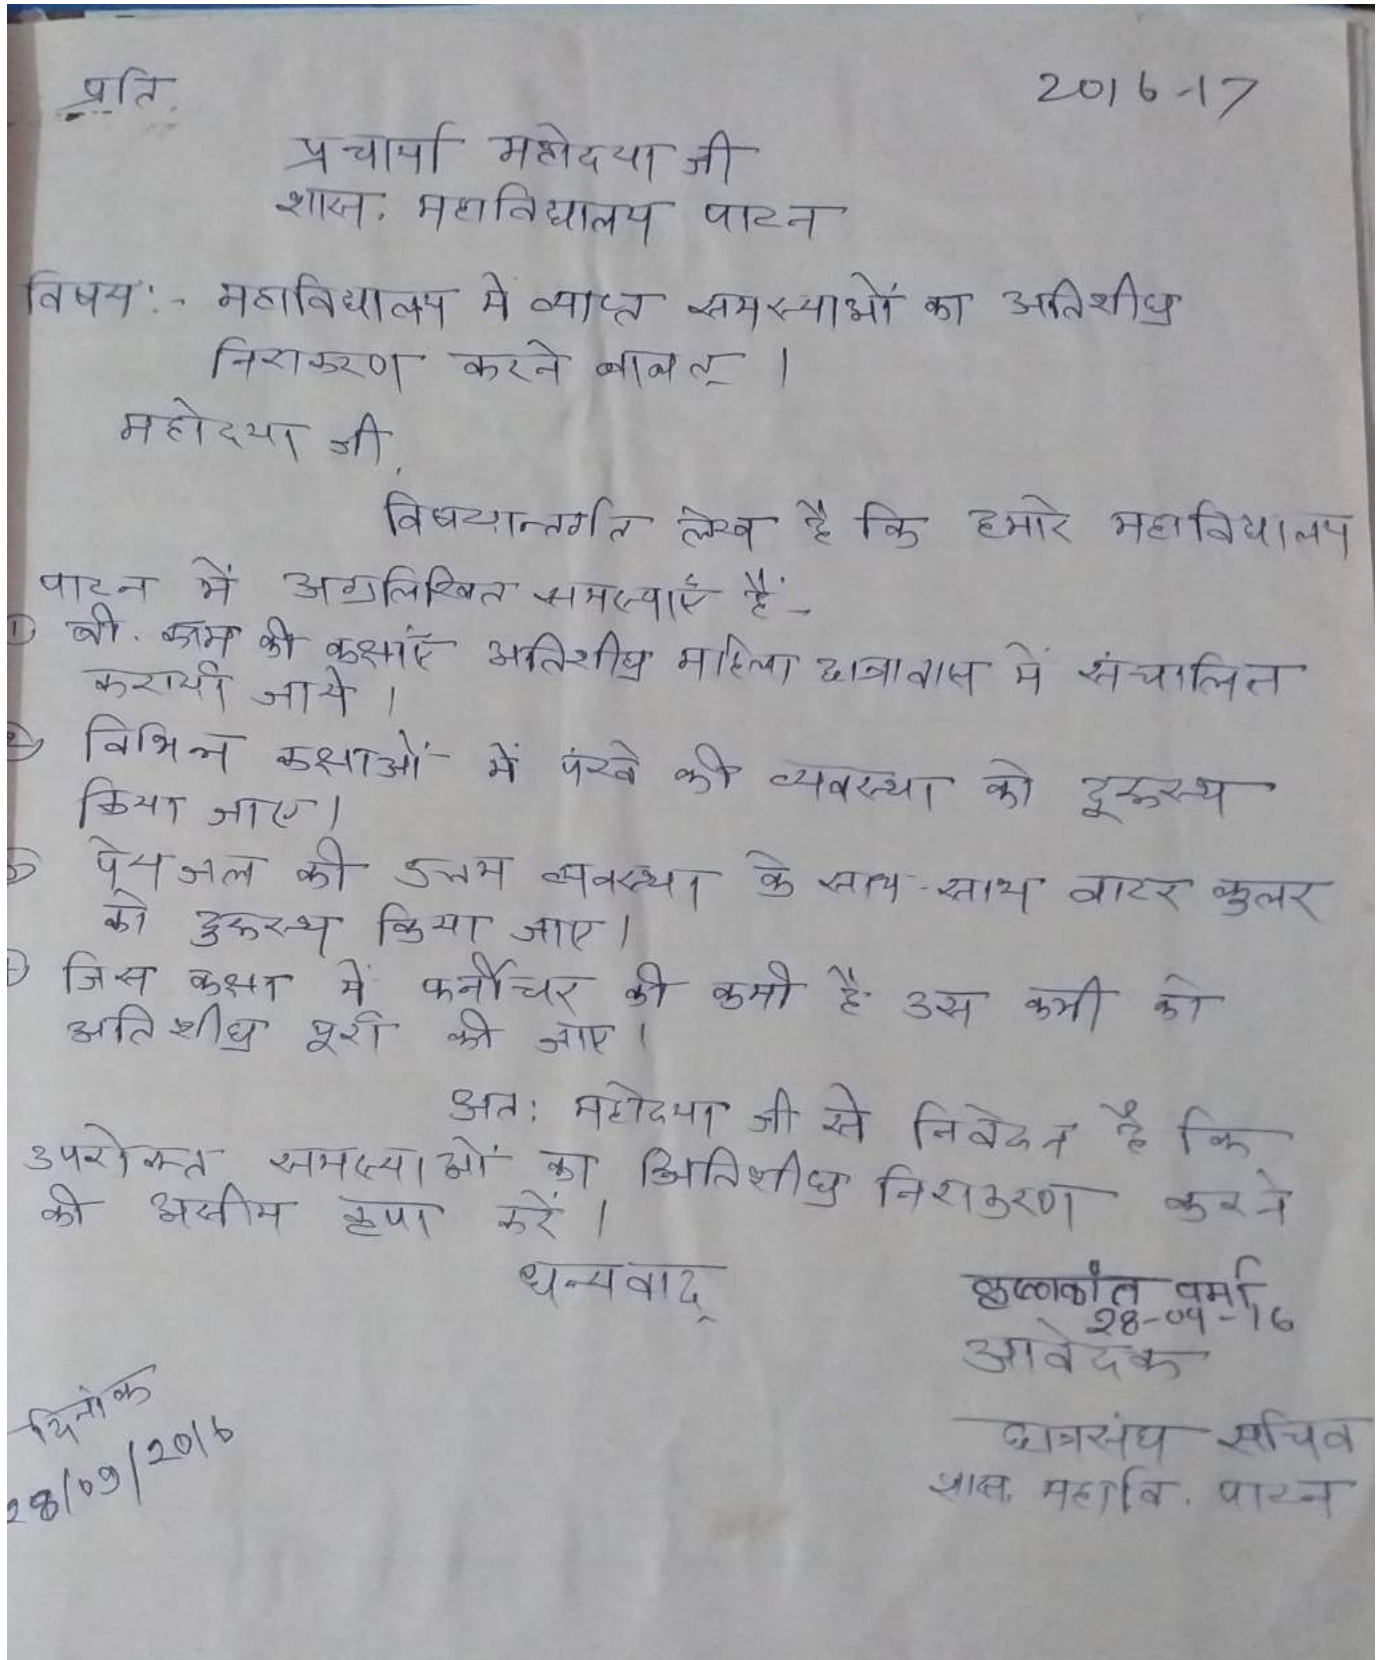 प्रति. 2016-17
प्रचार्या महोदया जी
शास. महाविद्यालय पाटन
विषय:- महाविद्यालय में व्याप्त समस्याओं का अतिशीघ्र
निराकरण करने बाबत् ।
महोदया जी,
विषयान्तर्गत लेख है कि हमारे महाविद्यालय
पाटन में अग्रलिखित समस्याएँ हैं-
① बी. काम की कक्षाएँ अतिशीघ्र महिला छात्रावास में संचालित
करायी जाये ।
② विभिन्न कक्षाओं में पंखे की व्यवस्था को दूरूस्थ
किया जाए।
③ पेयजल की उत्तम व्यवस्था के साथ-साथ वाटर कुलर
को दुरूस्थ किया जाए।
④ जिस कक्षा में फर्नीचर की कमी है उस कमी को
अतिशीघ्र पूरी की जाए।
अत: महोदया जी से निवेदन है कि
उपरोक्त समस्याओं का अतिशीघ्र निराकरण करने
की असीम कृपा करें ।
धन्यवाद्
कृष्णकांत वर्मा
28-09-16
आवेदक
छात्रसंघ सचिव
शास. महावि. पाटन
दिनांक
28/09/2016